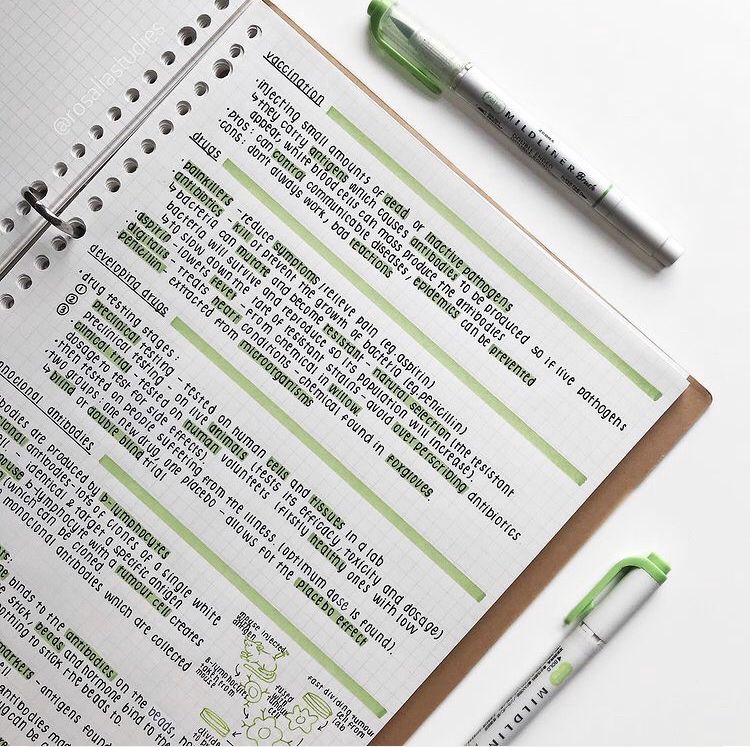 @rosaliastudies
vaccination
· injecting small amounts of dead or inactive pathogens
↳ they carry antigens which causes antibodies to be produced so if live pathogens
appear, white blood cells can mass produce the antibodies
· pros: can control communicable diseases / epidemics can be prevented
· cons: don't always work / bad reactions
drugs
· painkillers - reduce symptoms / relieve pain (eg aspirin)
· antibiotics - kill or prevent the growth of bacteria (eg penicillin)
↳ bacteria can mutate and become resistant - natural selection (the resistant
bacteria will survive and reproduce so its population will increase)
↳ to slow down the rate of resistant strains - avoid overperscribing antibiotics
· aspirin - lowers fever - from chemical in willow
· digitalis - treats heart conditions - chemical found in foxgloves
· penicillin - extracted from microorganisms
developing drugs
· drug testing stages:
① preclinical testing - tested on human cells and tissues in a lab
② preclinical testing - on live animals (tests its efficacy, toxicity and dosage)
③ clinical trial - tested on human volunteers (firstly healthy ones with low
dosage to test for side effects)
then tested on people suffering from the illness (optimum dose is found).
· two groups: one new drug, one placebo - allows for the placebo effect
↳ blind or double blind trial
antibodies
are produced by b-lymphocytes
antibodies - lots of clones of a single white
- identical & target a specific antigen
b-lymphocyte with a tumour cell creates
(which can be cloned
antibodies which are collected
binds to the antibodies on the beads,
stick, beads and hormone bind to the
nothing to stick the beads to.
markers - antigens found
mouse injected
antigen
b-lymphocytes
taken from
fused
with
tumour
cell
fast dividing tumour
cell from
lab
ZEBRA
MILDLINER Brush
DOUBLE-SIDED
◀ BOLD
MILD